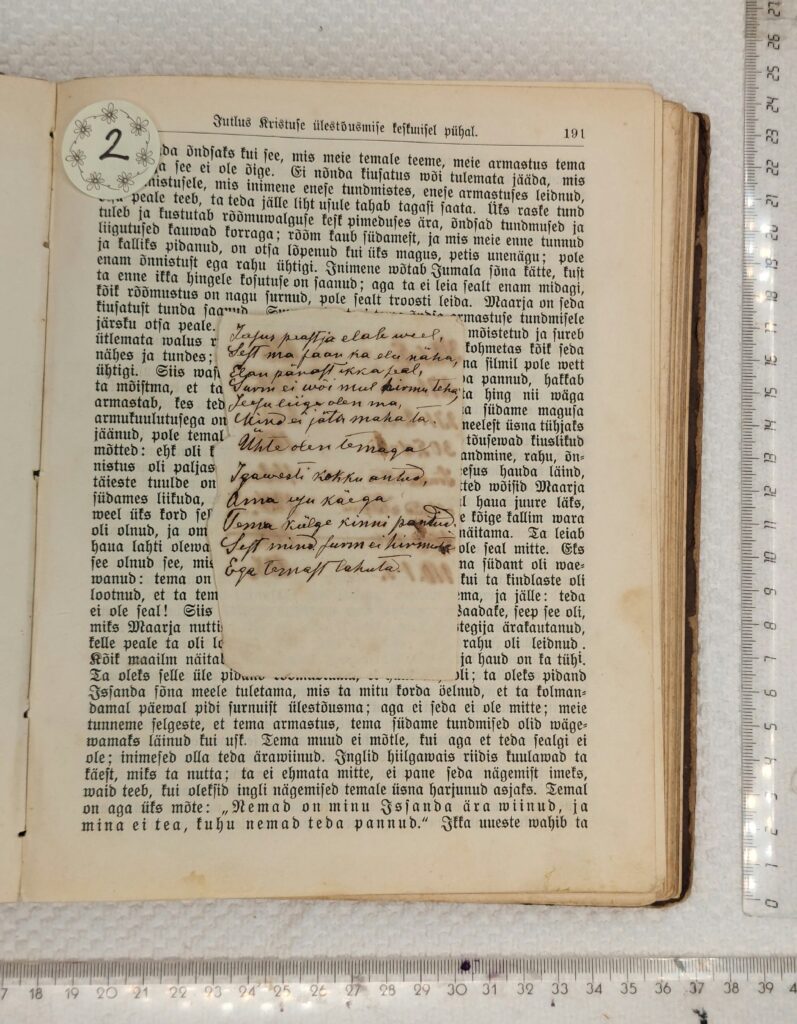 2
Jutlus Kristuse ülestõusmise keskmisel pühal. 191
da õndsaks kui see, mis meie temale teeme, meie armastus tema
see ei ole õige. Ei nõnda kiusatus wõi tulemata jääda, mis
mis inimene enese tundmistes, enese armastuses leidnud,
peale teeb, ta teda jälle liht usule tahab tagasi saata. Üks raske tund
tuleb ja kustutab rõõmuwalguse kesk pimeduses ära, õndsad tundmused ja
liigutused kauwad korraga; rõõm kaub südamest, ja mis meie enne tunnud
ja kalliks pidanud, on otsa lõpenud kui üks magus, petis unenägu; pole
enam õnnistust ega rahu ühtigi. Inimene wõtab Jumala sõna kätte, kust
ta enne ikka hingele kosutuse on saanud; aga ta ei leia sealt enam midagi,
kõik rõõmustus on nagu surnud, pole sealt troosti leida. Maarja on seda
kiusatust tunda saanud. armastuse tundmisele
järsku otsa peale. mõistetud ja sureb
ütlemata walus kohmetas kõik seda
nähes ja tundes; silmil pole wett
ühtigi. Siis pannud, hakkab
ta mõistma, et ta ta hing nii wäga
armastab, kes ted südame magusa
armukuulutusega on meelest üsna tühjaks
jäänud, pole temal tõusewad kiuslikud
mõtted: ehk oli andmine, rahu, õn-
nistus oli paljas hauda läind,
täieste tuulde on wõisid Maarja
südames liikuda, haua juure läks,
weel üks kord kõige kallim wara
oli olnud, ja näitama. Ta leiab
haua lahti olewa ole seal mitte. Eks
see olnud see, südant oli wae-
wanud: tema on kui ta kindlaste oli
lootnud, et ta tem ja jälle: teda
ei ole seal! Siis Waadake, seep see oli,
miks Maarja nuttis ärakautanud,
kelle peale ta oli rahu oli leidnud.
Kõik maailm näital ja haud on ka tühi.
Ta oleks selle üle oli; ta oleks pidand
Issanda sõna meele tuletama, mis ta mitu korda öelnud, et ta kolman-
damal päewal pidi surnuist ülestõusma; aga ei seda ei ole mitte; meie
tunneme selgeste, et tema armastus, tema südame tundmised olid wäge-
wamaks läinud kui usk. Tema muud ei mõtle, kui aga et teda sealgi ei
ole; inimesed olla teda ärawiinud. Inglid hiilgawais riidis kuulawad ta
käest, miks ta nutta; ta ei ehmata mitte, ei pane seda nägemist imeks,
waid teeb, kui oleksid ingli nägemised temale üsna harjunud asjaks. Temal
on aga üks mõte: „Nemad on minu Issanda ära wiinud, ja
mina ei tea, kuhu nemad teda pannud.“ Ikka uueste wahib ta
Jesus peastja elab weel,
Sest ma saan ka elu näha,
Elan pärast ikka seal,
Surm ei wõi mul hirmu teha,
Jesu liige olen ma,
Mind ei jäta maha ta.
Ühte olen temaga
Igawesti kokku antud,
Oma usu käega
Tema külge kinni pandud.
Sest mind surm ei hirmuta
Ega temast lahuta.
0 1 2 3 4 5 6 7 8 9 10 11 12 13 14 15 16 17 18 19 20 21 22 23 24 25 26 27
17 18 19 20 21 22 23 24 25 26 27 28 29 30 31 32 33 34 35 36 37 38 39